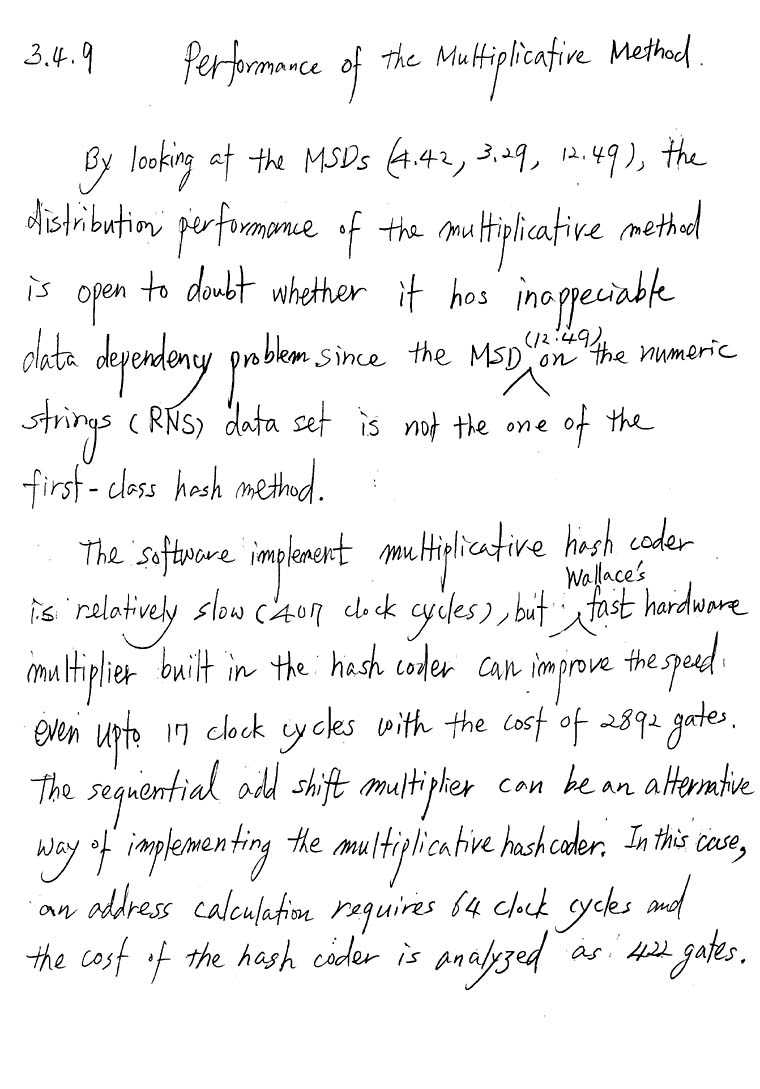 3.4.9 Performance of the Multiplicative Method.
By looking at the MSDs (4.42, 3.29, 12.49), the
distribution performance of the multiplicative method
is open to doubt whether it has inappeciable
data dependency problem since the MSD (12.49) on the numeric
strings (RNS) data set is not the one of the
first-class hash method.
The software implement multiplicative hash coder
is relatively slow (407 clock cycles), but Wallace's fast hardware
multiplier built in the hash coder can improve the speed
even upto 17 clock cycles with the cost of 2892 gates.
The sequential add shift multiplier can be an alternative
way of implementing the multiplicative hash coder. In this case,
an address calculation requires 64 clock cycles and
the cost of the hash coder is analyzed as 422 gates.